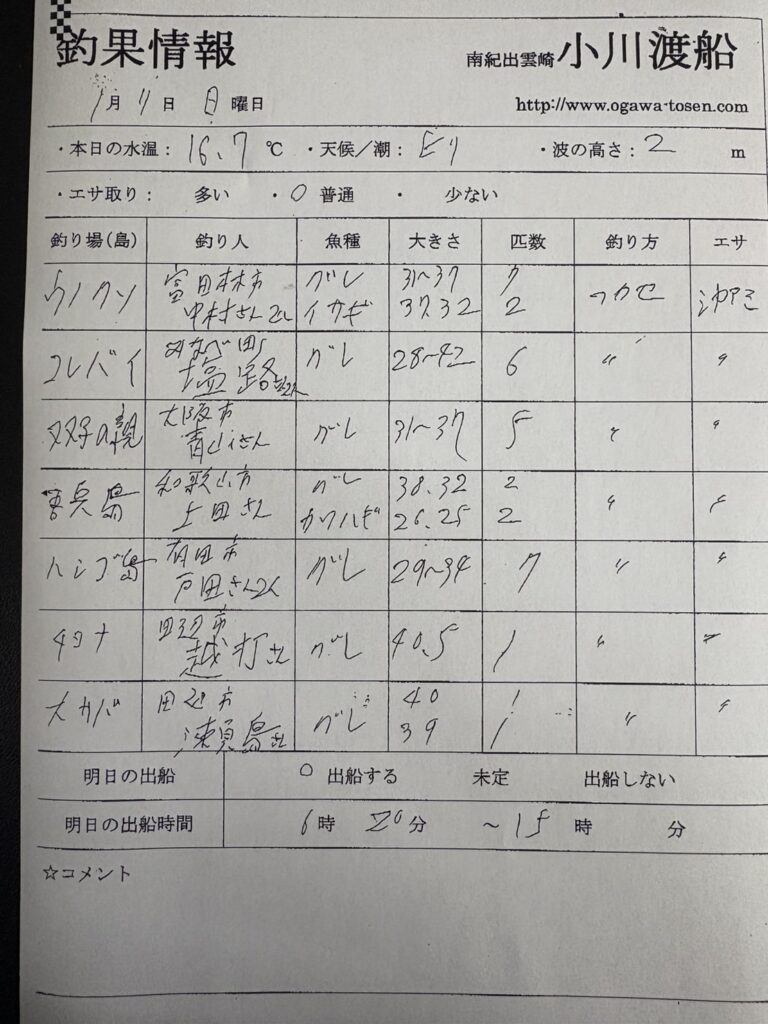 釣果情報
南紀出雲崎 小川渡船
1月11日 日曜日
http://www.ogawa-tosen.com
・本日の水温：16.7℃ ・天候／潮： ・波の高さ：2 m
・エサ取り： 多い ・○普通 ・ 少ない
釣り場（島） 釣り人 魚種 大きさ 匹数 釣り方 エサ
富田林市 グレ 31〜37 7
中村さん2人 イサギ 37.32 2 フカセ 沖アミ
コレバイ みなべ町 グレ 28〜42 6 〃 〃
塩路さん2人
双子の親 大阪市 グレ 31〜37 5 〃 〃
青山さん
和歌山市 グレ 38.32 2
上田さん カワハギ 26.25 2 〃 〃
ハシブ島 有田市 グレ 29〜34 7 〃 〃
戸田さん2人
田辺市 グレ 40.5 1 〃 〃
越打さん
大カバ 田辺市 グレ 40 1 〃 〃
瀬島さん 39 1
明日の出船 ○出船する 未定 出船しない
明日の出船時間 6時 20分 〜15時 分
☆コメント